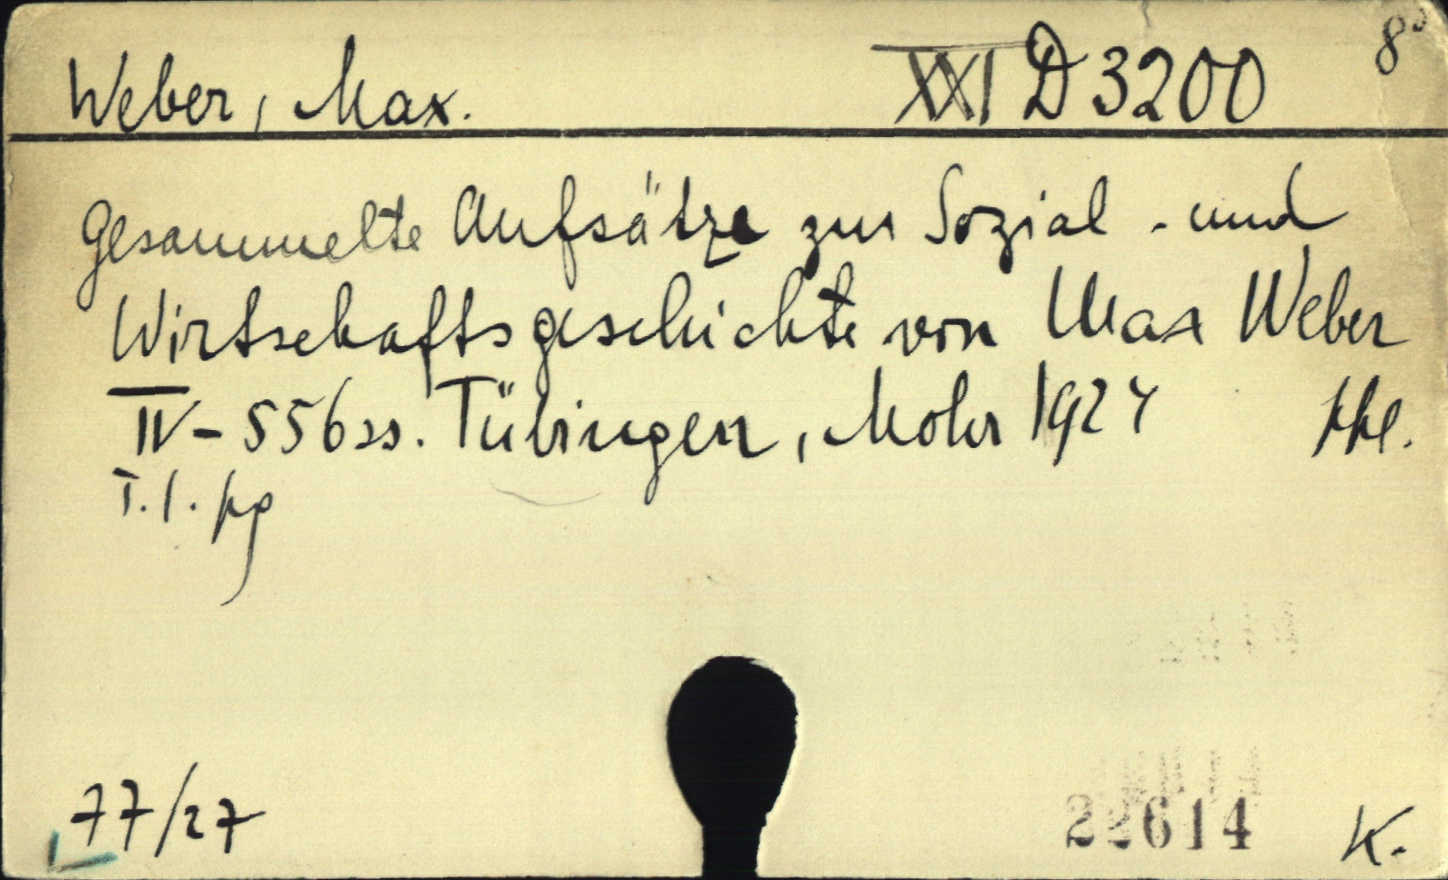 8°
Weber, Max. XXI D 3200
Gesammelte Aufsätze zur Sozial - und
Wirtschaftsgeschichte von Max Weber
IV - 556 ss. Tübingen, Mohr 1924
77/27
22614 K.